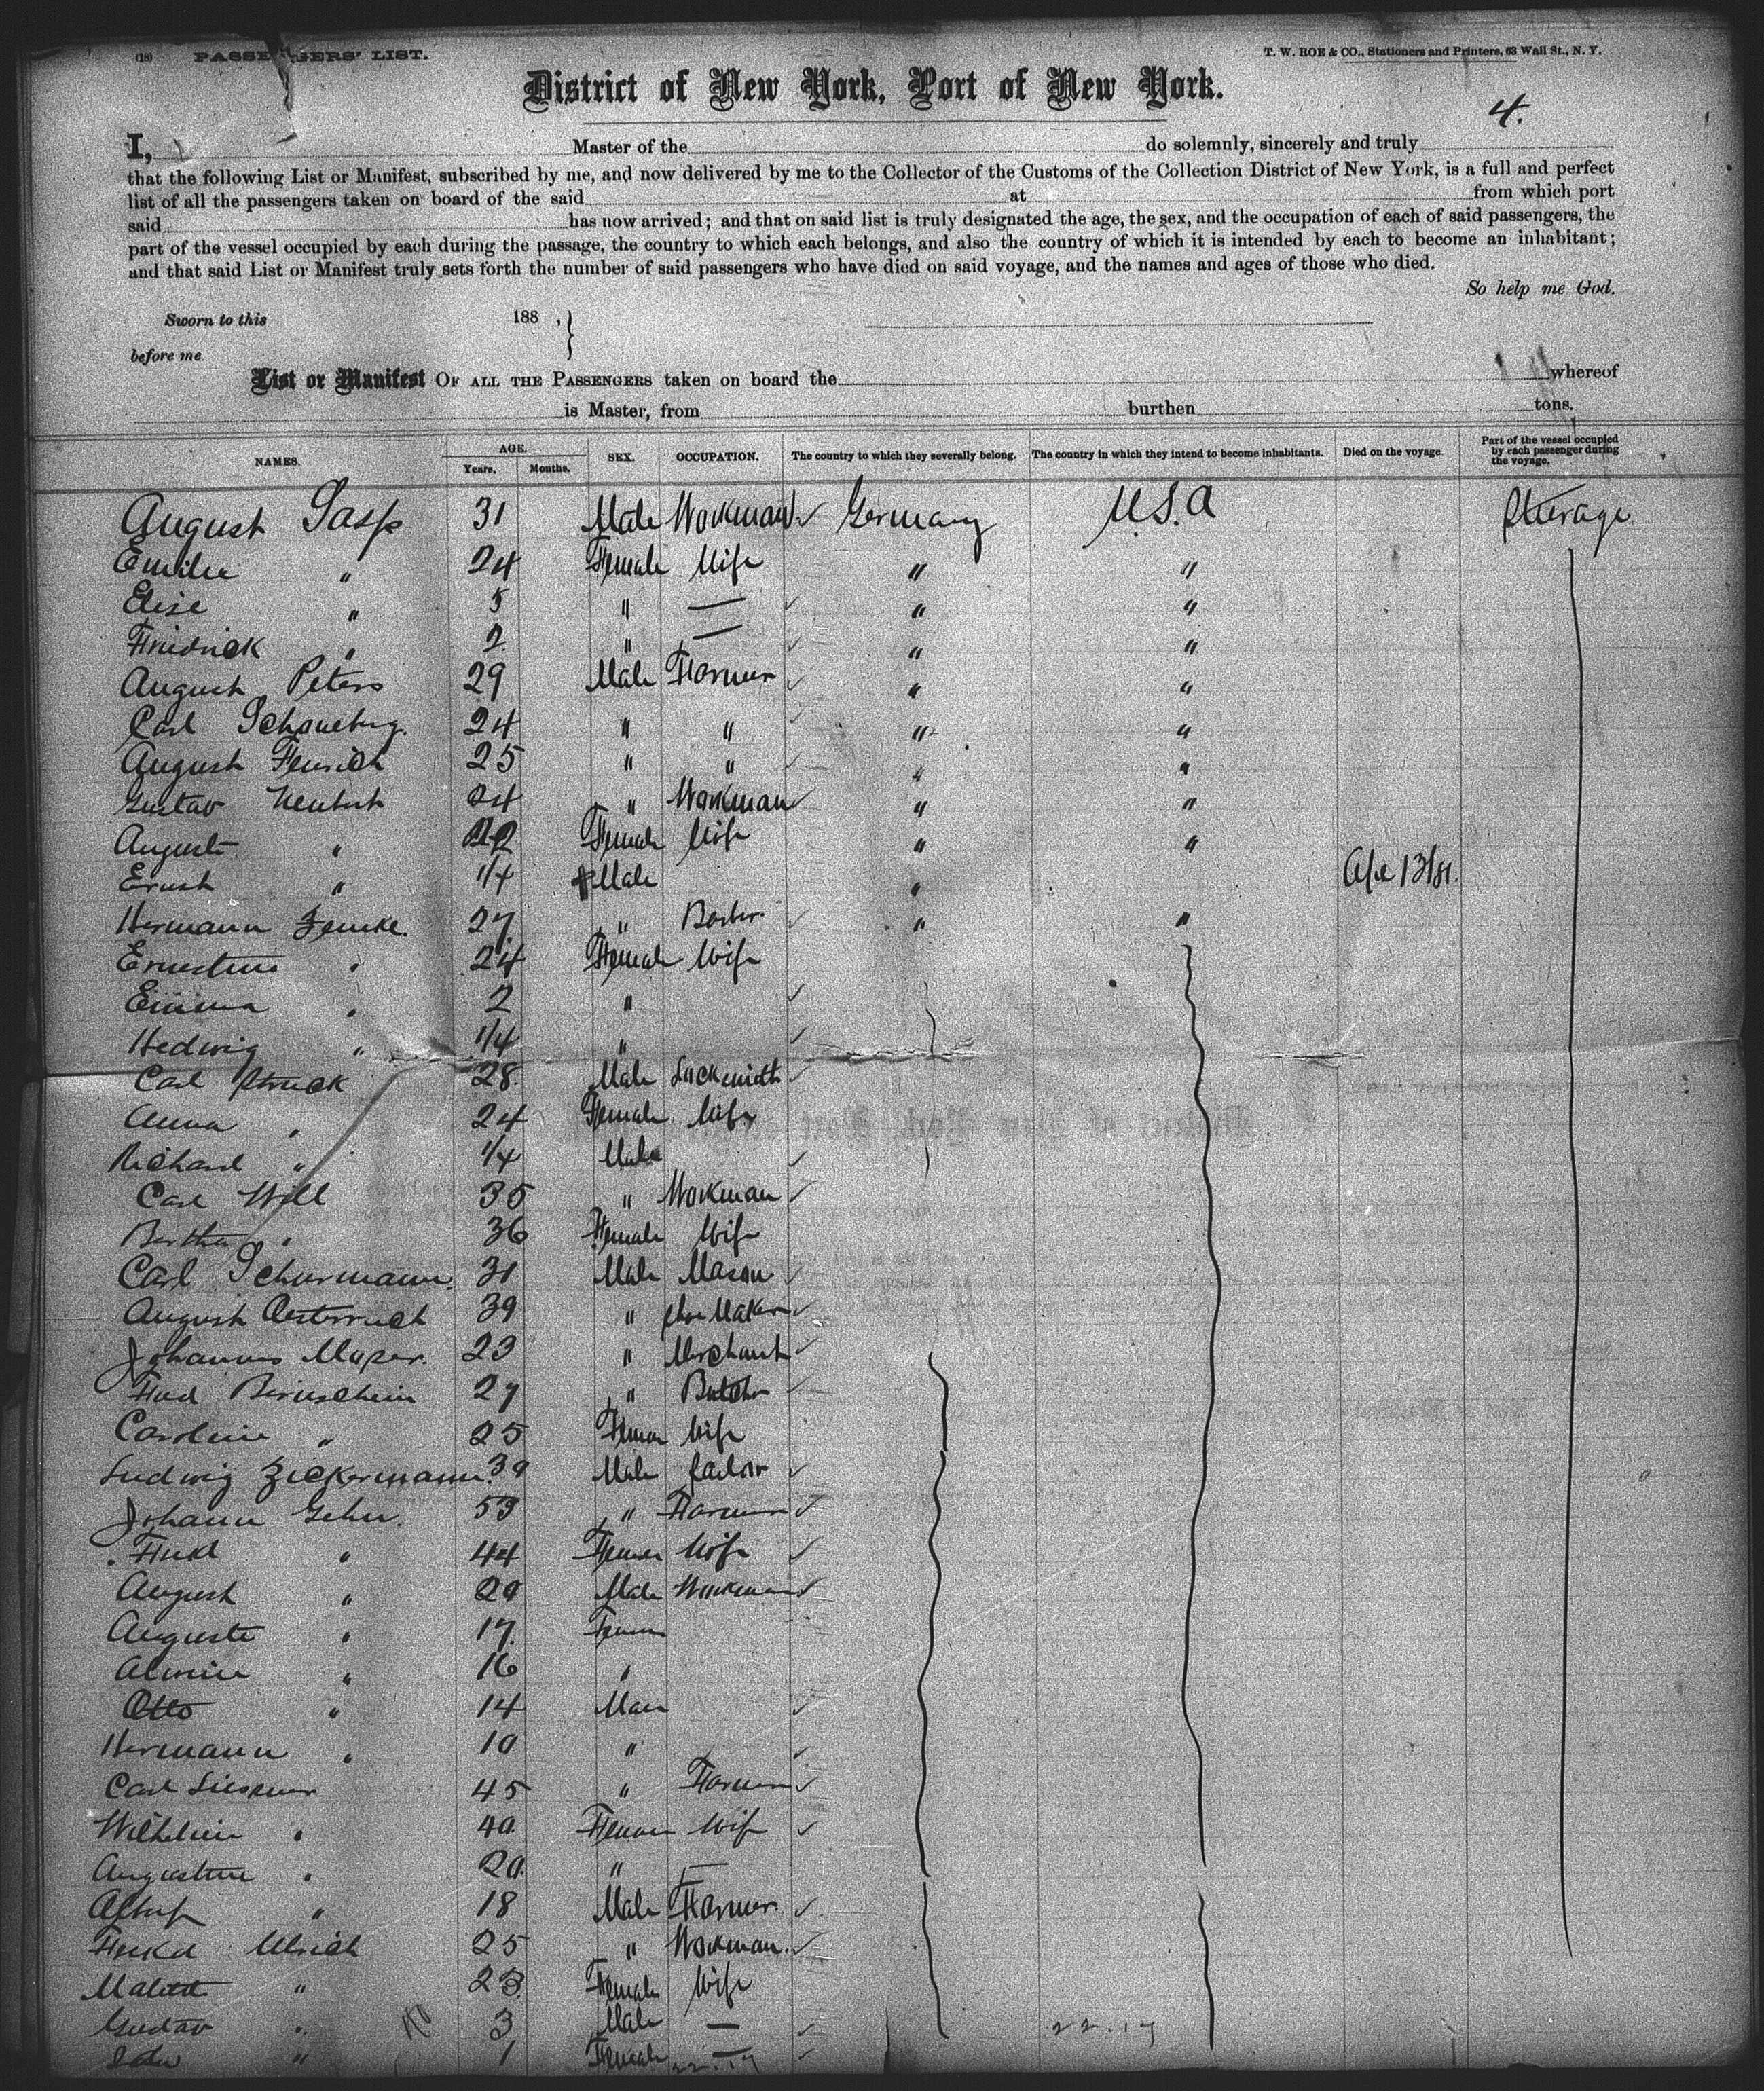 (18) PASSENGERS' LIST.
T. W. ROE & CO., Stationers and Printers, 63 Wall St., N. Y.
District of New York, Port of New York.
4.
I, Master of the do solemnly, sincerely and truly
that the following List or Manifest, subscribed by me, and now delivered by me to the Collector of the Customs of the Collection District of New York, is a full and perfect
list of all the passengers taken on board of the said at from which port
said has now arrived; and that on said list is truly designated the age, the sex, and the occupation of each of said passengers, the
part of the vessel occupied by each during the passage, the country to which each belongs, and also the country of which it is intended by each to become an inhabitant;
and that said List or Manifest truly sets forth the number of said passengers who have died on said voyage, and the names and ages of those who died.
So help me God.
Sworn to this 188 ,
before me
List or Manifest OF ALL THE PASSENGERS taken on board the whereof
is Master, from burthen tons.
NAMES. AGE. Years. Months. SEX. OCCUPATION. The country to which they severally belong. The country in which they intend to become inhabitants. Died on the voyage. Part of the vessel occupied by each passenger during the voyage.
August 31 Male Workman Germany U.S.A Steerage
Emilie " 24 Female Wife " "
Elise " 5 " — " "
Friedrick " 2 " — " "
August Peters 29 Male Farmer " "
Carl 24 " " " "
August 25 " " " "
Gustav 24 " Workman " "
Auguste " 22 Female Wife " "
Ernst " 1/4 Male "
Hermann Zemke. 27 " Barber " "
Ernestine " 24 Female Wife
Emma " 2 "
Hedwig " 1/4 "
Carl Struck 28 Male
Anna " 24 Female Wife
Richard " 1/4 Male
Carl Will 35 " Workman
Bertha " 36 Female Wife
Carl Schurmann 31 Male Mason
August Oesterreich 39 " Shoe Maker
Johannes 23 " Merchant
27 " Butcher
Caroline " 25 Wife
Ludwig Zickermann 39 Male
Johann Gehn. 53 " Farmer
" 44 Wife
August " 20 Male Workman
Auguste " 17
" 16 "
Otto " 14
Hermann " 10 "
Carl 45 " Farmer
" 40 Wife
" 20 " —
" 18 Male Farmer
Ulrich 25 " Workman.
" 23 Female Wife
Gustav " 3 Male — 22.17
" 1 Female —